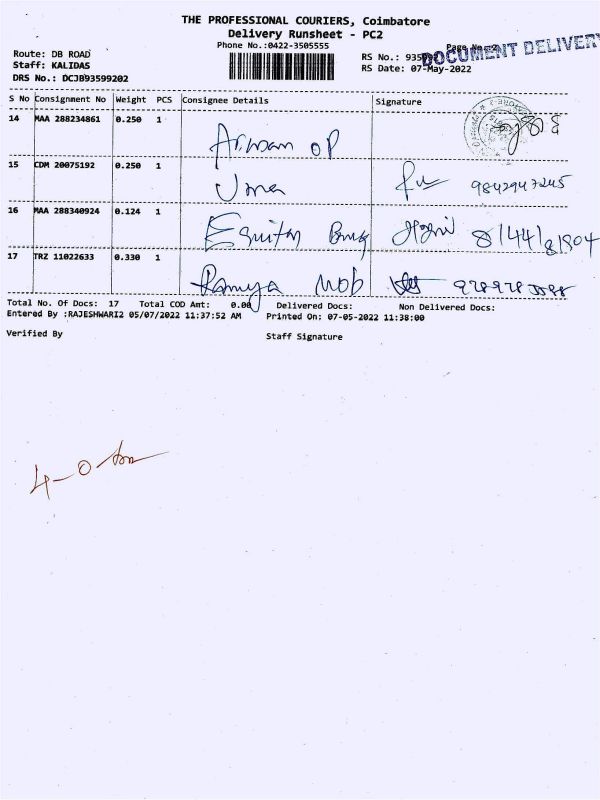 THE PROFESSIONAL COURIERS, Coimbatore
Delivery Runsheet - PC2
Phone No.:0422-3505555
Page No.:2
DOCUMENT DELIVERY
Route: DB ROAD
RS No.: 9359
Staff: KALIDAS
RS Date: 07-May-2022
DRS No.: DCJB93599202
S No Consignment No Weight PCS Consignee Details Signature
14 MAA 288234861 0.250 1
15 CDM 20075192 0.250 1 Uma 9842947245
16 MAA 288340924 0.124 1
17 TRZ 11022633 0.330 1 Ramya Mob
Total No. Of Docs: 17 Total COD Amt: 0.00 Delivered Docs: Non Delivered Docs:
Entered By :RAJESHWARI2 05/07/2022 11:37:52 AM Printed On: 07-05-2022 11:38:00
Verified By Staff Signature